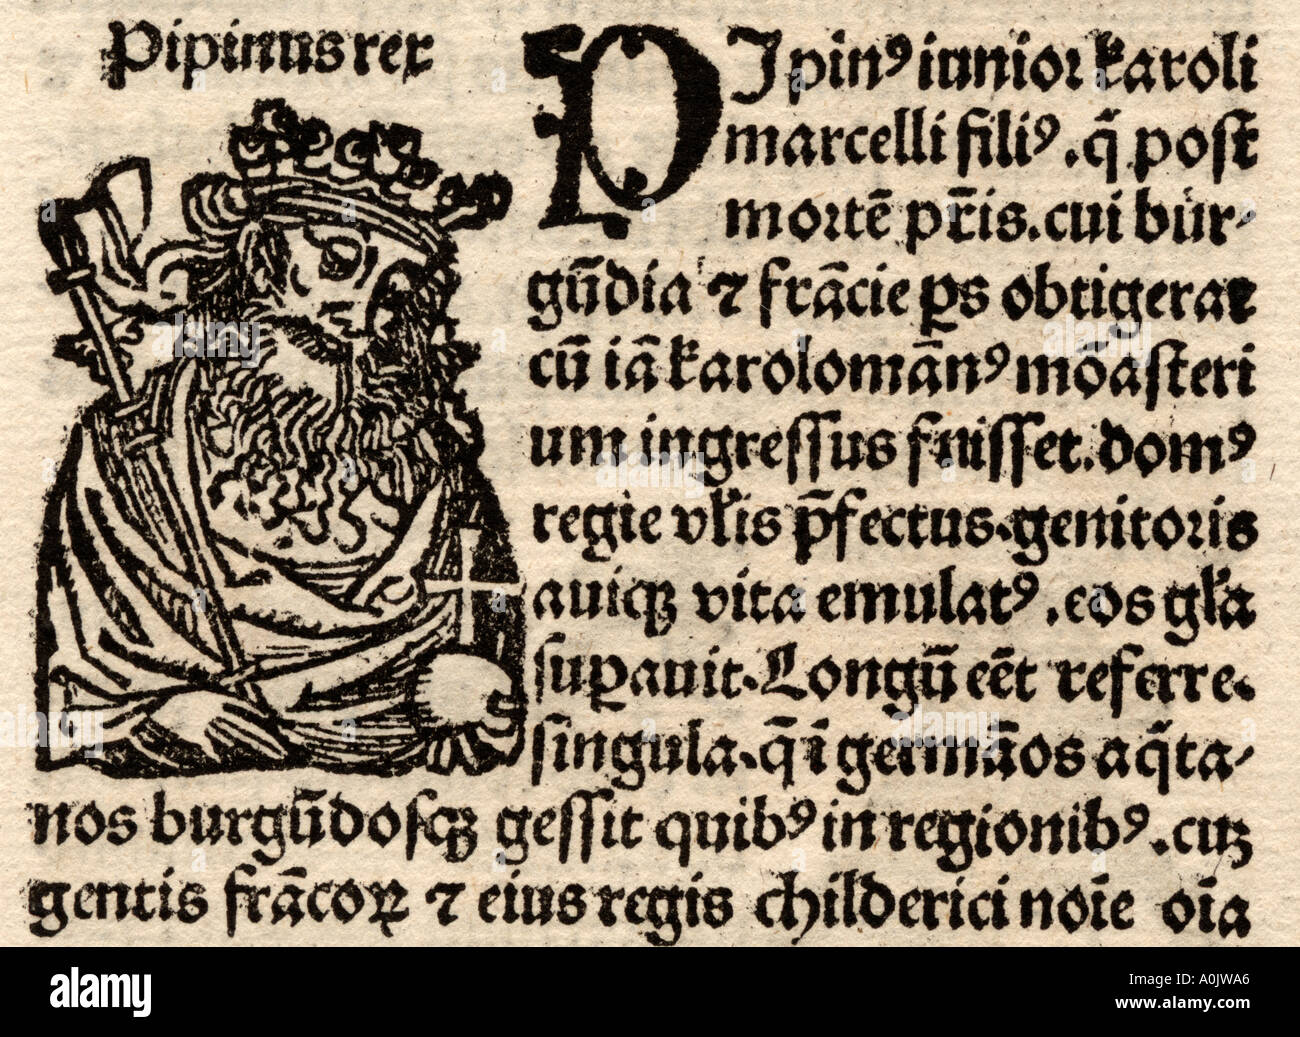 Pipinus rex
PIpinꝰ iunior karoli
marcelli filiꝰ .q̃ post
mortẽ pr̃is.cui bur⸗
gũdia ⁊ frãcie ps obtigerat
cũ iã karolomãnꝰ mõasteri
um ingressus fuisset.domꝰ
regie vl̃is p̃fectus.genitoris
auiqꝫ vita emulatꝰ .eos gl̃ia
suꝑauit.Longũ eẽt referre.
singula.q̃ ĩ germãos aq̃ta⸗
nos burgũdosqꝫ gessit quibꝰ in regionibꝰ .cuꝫ
gentis frãcoꝝ ⁊ eius regis childerici noĩe oĩa
alamy
Image ID: A0JWA6
www.alamy.com